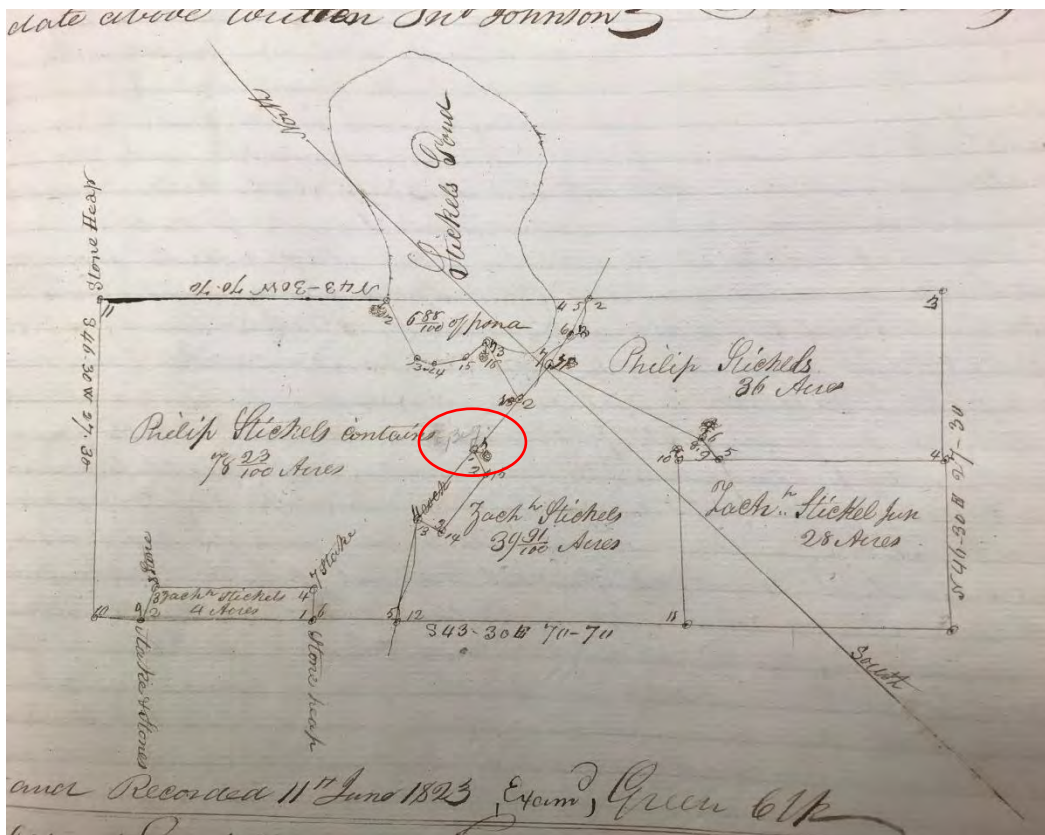 date above written Jno Johnson
North
Stickels Pond
Stone Heap
N43-30W 70-70
11
2
4 5 2
3
6 88/100 of pona
6
7
13
3 14 15
16
2
Philip Stickels
36 Acres
Philip Stickels contains
78 23/100 Acres
346-30W 27-30
6
10 9 5
4
Zachh Stickels
39 91/100 Acres
3 2 14
Zachh Stickel Jun
28 Acres
N46-30E 27-30
7 Stake
8
3
4
Zachh Stickels
4 Acres
10
9 2
1 6
5 12
11
S43-30E 70-70
Stake & Stones
Stone heap
South
Recorded 11th June 1823, Examd, Green Clk